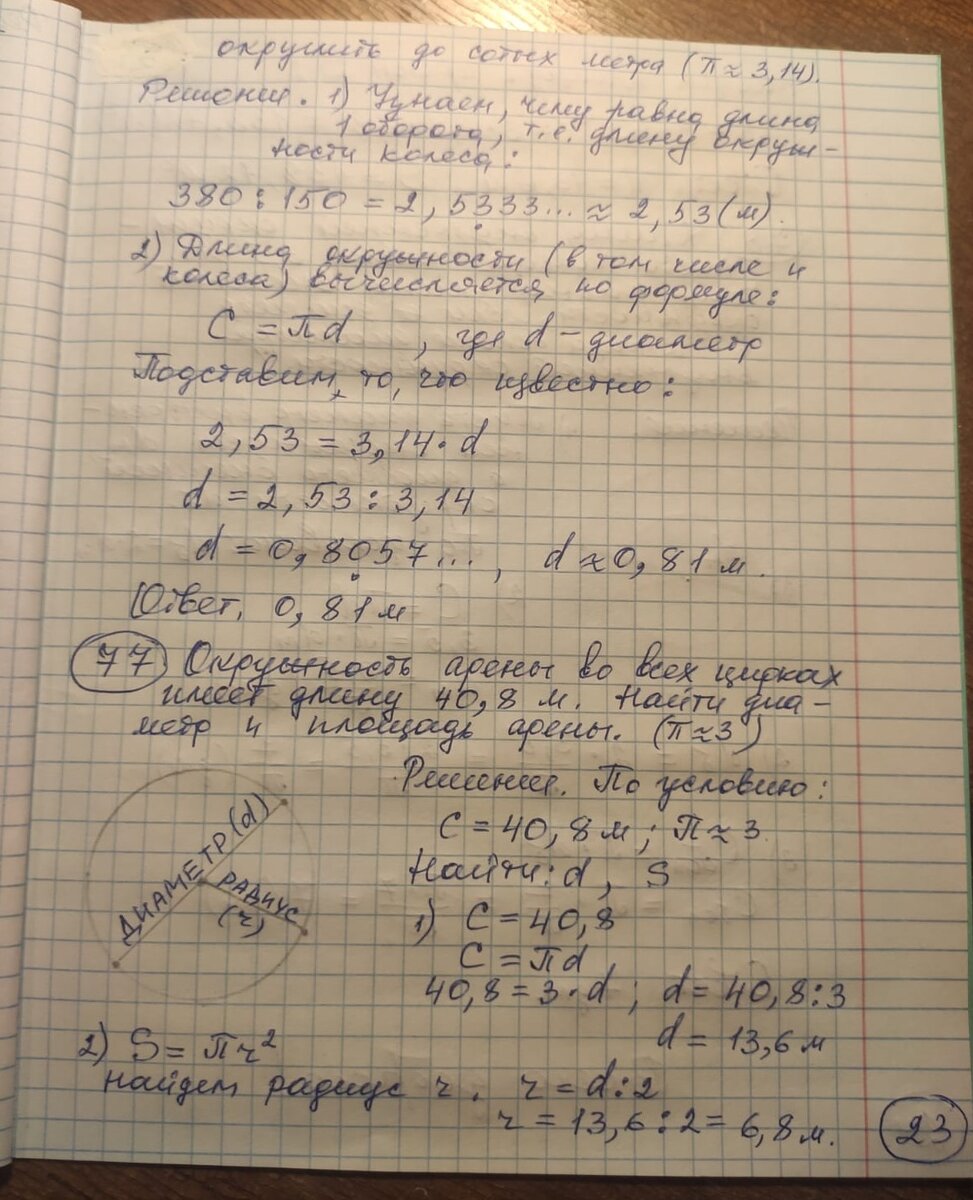 округлить до сотых метра (π ≈ 3,14).
Решение. 1) Узнаем, чему равна длина
1 оборота, т.е. длину окруж-
ности колеса:
380 : 150 = 2,5333... ≈ 2,53 (м).
2) Длина окружности (в том числе и
колеса) вычисляется по формуле:
C = πd , где d - диаметр
Подставим, то, что известно:
2,53 = 3,14 · d
d = 2,53 : 3,14
d = 0,8057..., d ≈ 0,81 м.
Ответ. 0,81 м
77 Окружность арены во всех цирках
имеет длину 40,8 м. Найти диа-
метр и площадь арены. (π ≈ 3)
Решение. По условию:
C = 40,8 м ; π ≈ 3
Найти: d, S
ДИАМЕТР (d)
РАДИУС
(r)
1) C = 40,8
C = πd
40,8 = 3 · d ; d = 40,8 : 3
d = 13,6 м
2) S = πr²
найдем радиус r. r = d : 2
r = 13,6 : 2 = 6,8 м.
23